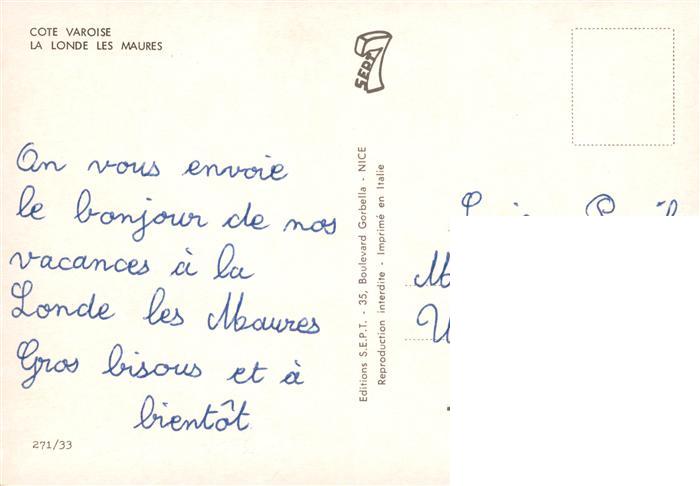 COTE VAROISE
LA LONDE LES MAURES
SEPT
7
On vous envoie
le bonjour de nos
vacances à la
Londe les Maures
Gros bisous et à
bientôt
271/33
Editions S.E.P.T. - 35, Boulevard Gorbella - NICE
Reproduction interdite - Imprimé en Italie